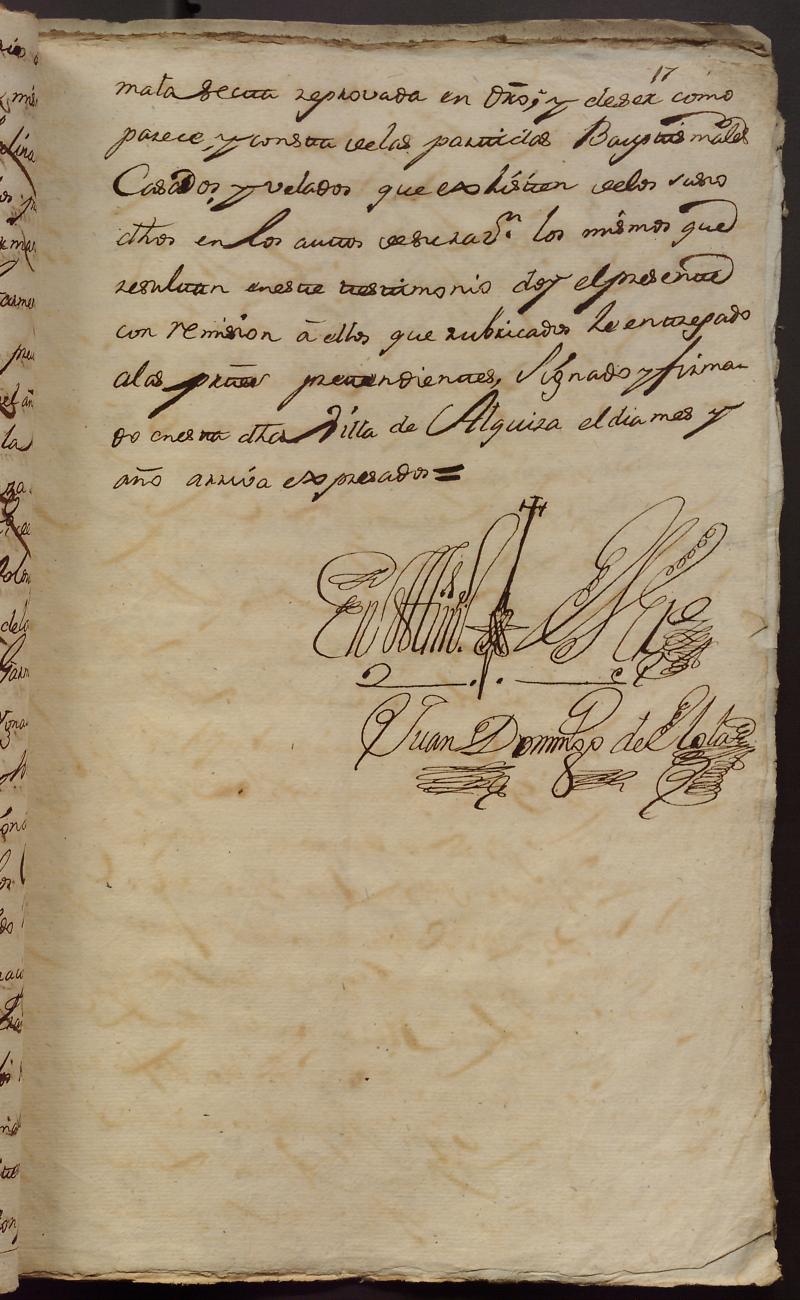 17
mala secta reprovada en dro; y deser como
parece, y consta delas partidas Bauptismales
Casados, y velados que existen delos suso
dhos en los autos desu razn. los mismos que
resultan eneste testimonio doy el presente
con remision â ellos que rubricados he entregado
alas partes pretendientes, Signado y firma-
do enesta dha Villa de Alquiza el dia mes y
año arriva expresados =
En testimo. de Verd
Juan Domingo de